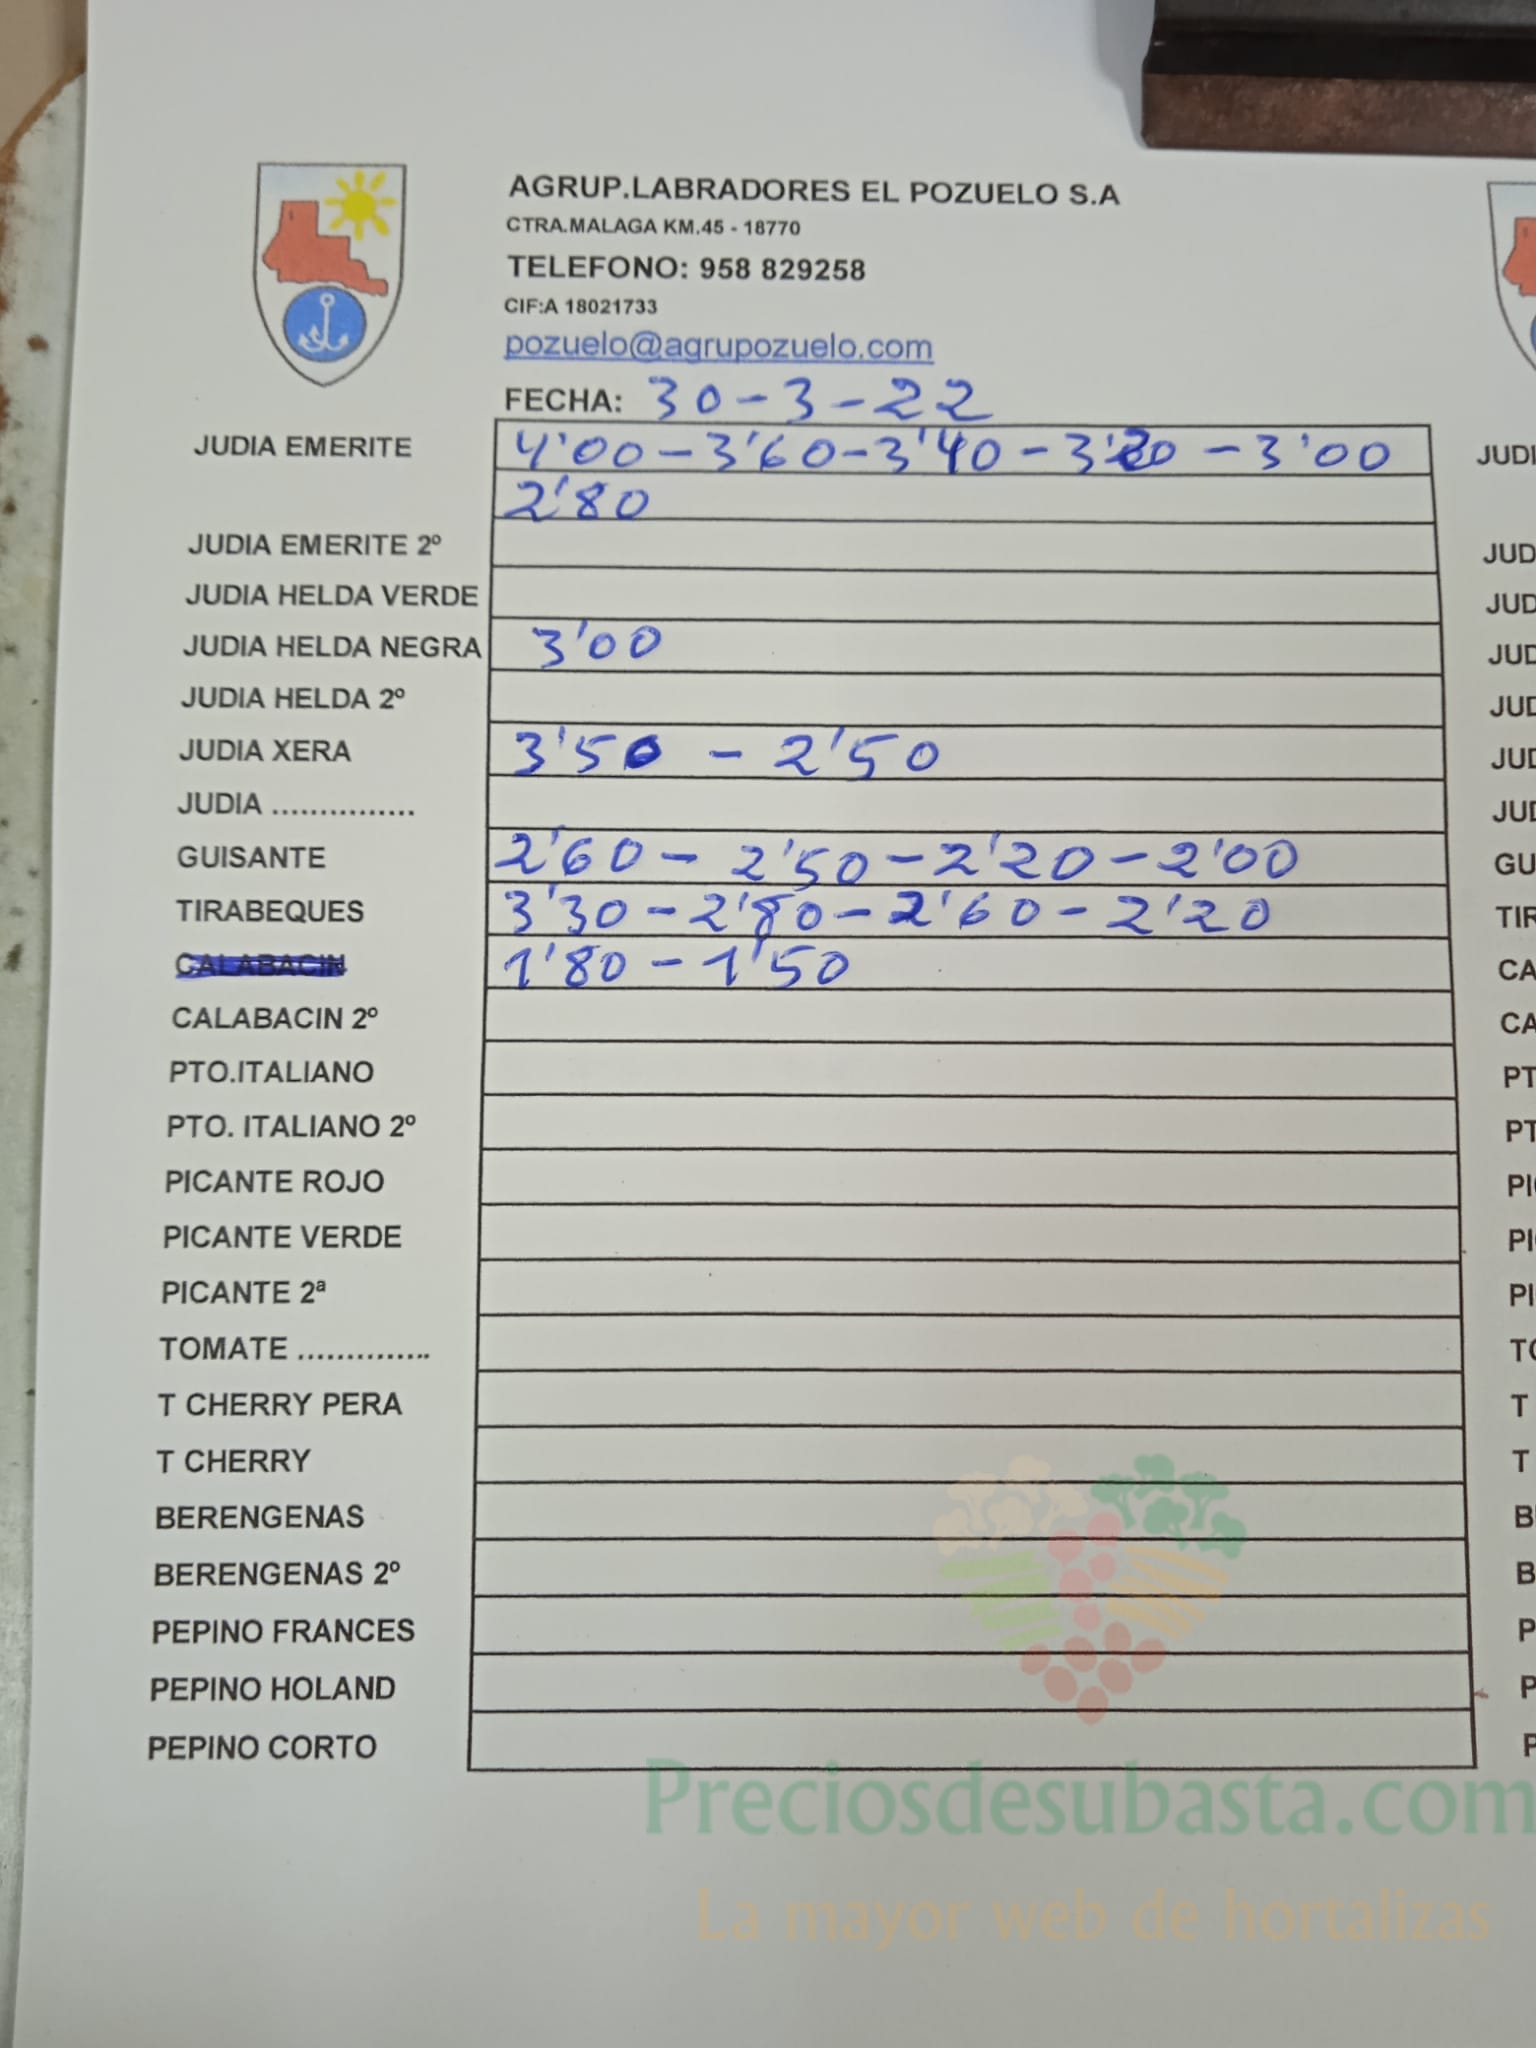 AGRUP.LABRADORES EL POZUELO S.A
CTRA.MALAGA KM.45 - 18770
TELEFONO: 958 829258
CIF:A 18021733
pozuelo@agrupozuelo.com
FECHA: 30-3-22
JUDIA EMERITE 4'00-3'60-3'40-3'20-3'00
2'80
JUDIA EMERITE 2º
JUDIA HELDA VERDE
JUDIA HELDA NEGRA 3'00
JUDIA HELDA 2º
JUDIA XERA 3'50 - 2'50
JUDIA ...............
GUISANTE 2'60- 2'50-2'20-2'00
TIRABEQUES 3'30-2'80-2'60-2'20
CALABACIN 1'80-1'50
CALABACIN 2º
PTO.ITALIANO
PTO. ITALIANO 2º
PICANTE ROJO
PICANTE VERDE
PICANTE 2ª
TOMATE ..............
T CHERRY PERA
T CHERRY
BERENGENAS
BERENGENAS 2º
PEPINO FRANCES
PEPINO HOLAND
PEPINO CORTO
JUDI
JUD
JUD
JUD
JUD
JUD
JUD
GU
TIR
CA
CA
PT
PT
PI
PI
PI
TO
T
T
B
B
P
P
P
Preciosdesubasta.com
La mayor web de hortalizas